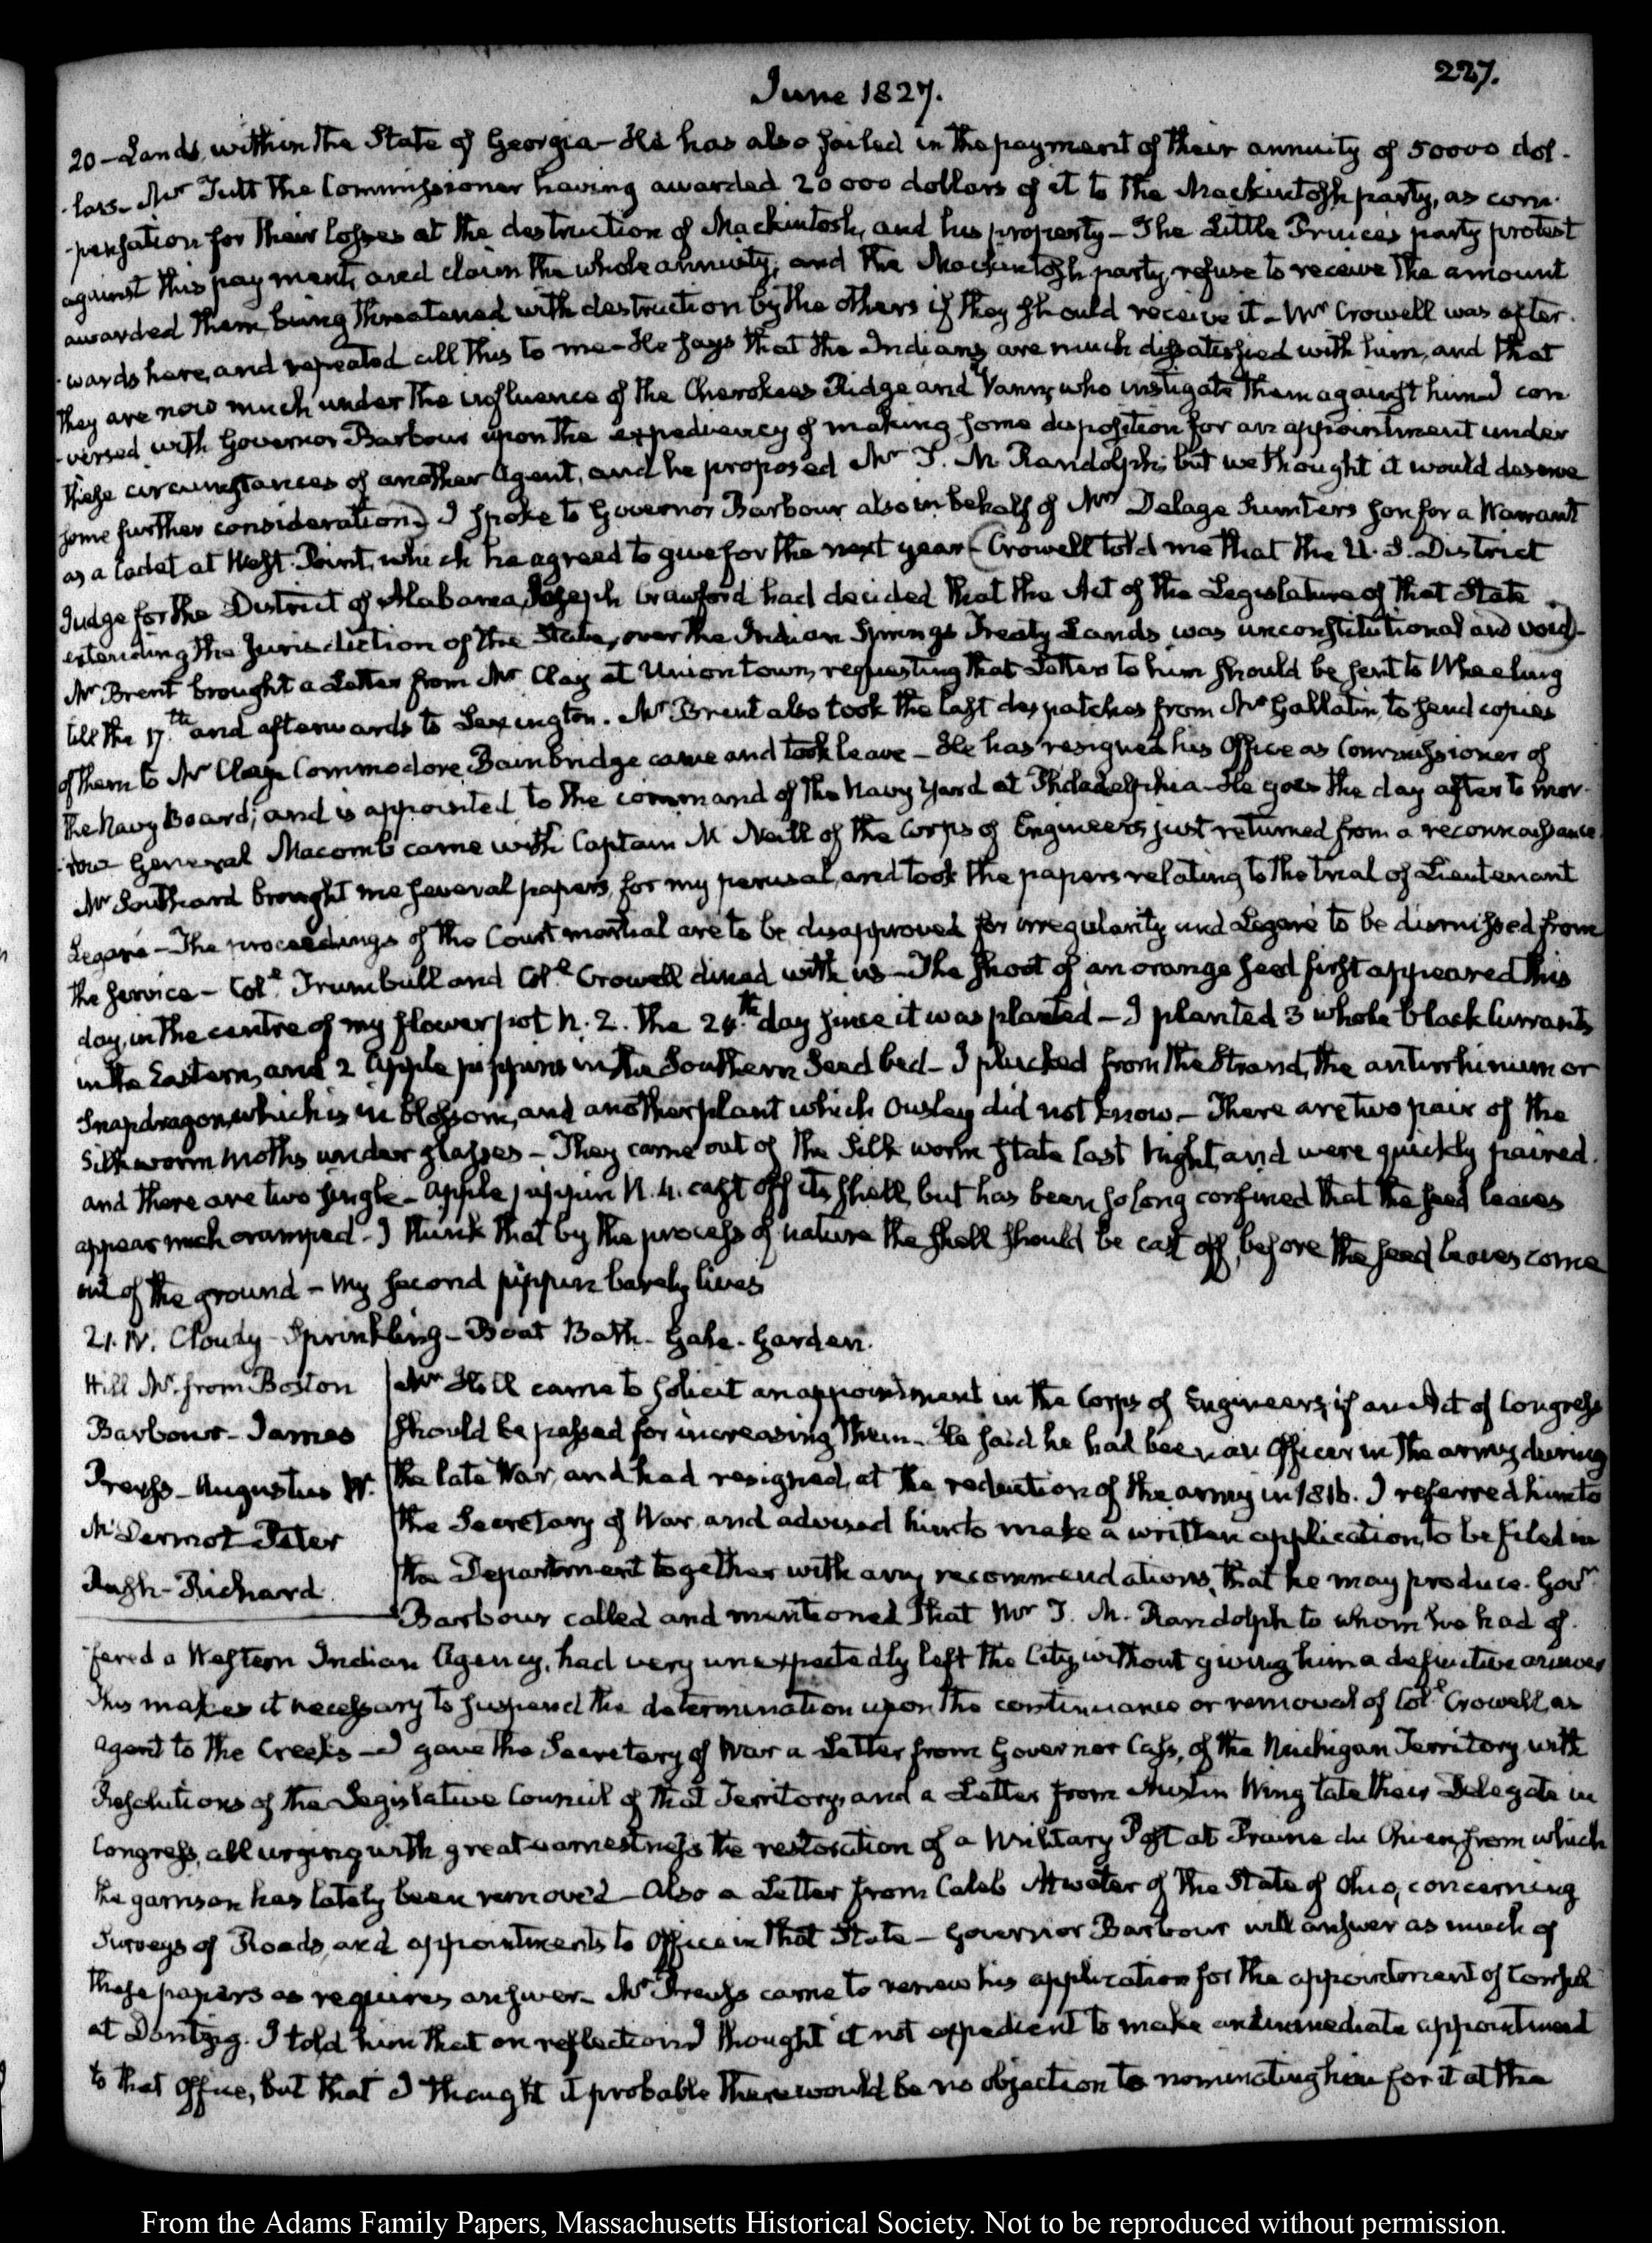 227.
June 1827.
20 – Lands, within the State of Georgia – He has also failed in the payment of their annuity of 50000 dol-
-lars – Mr Tutt the Commissioner having awarded 20000 dollars of it to the Mackintosh party, as com-
-pensation for their losses at the destruction of Mackintosh, and his property – The Little Prince's party protest
against this payment, and claim the whole annuity; and the Mackintosh party, refuse to receive the amount
awarded them, being threatened with destruction by the others if they should receive it – Mr Crowell was after-
-wards here, and repeated all this to me – He says that the Indians, are much dissatisfied with him, and that
they are now much under the influence of the Cherokees Ridge and Vann, who instigate them against him I con
-versed with Governor Barbour upon the expediency of making some disposition for an appointment under
these circumstances of another Agent, and he proposed Mr T. M. Randolph; but we thought it would deserve
some further consideration) I spoke to Governor Barbour also in behalf of Mrs Delage Sumters son for a Warrant
as a Cadet at West-Point, which he agreed to give for the next year (Crowell told me that the U.S. District
Judge for the District of Alabama, Joseph Crawford had decided that the Act of the Legislature of that State
extending the Jurisdiction of the State, over the Indian Springs Treaty Lands was unconstitutional and void) –
Mr Brent brought a Letter from Mr Clay at Uniontown, requesting that Letters to him should be sent to Wheeling
till the 17th and afterwards to Lexington. Mr Brent also took the last despatches from Mr Gallatin, to send copies
of them to Mr Clay. Commodore Bainbridge came and took leave – He has resigned his Office as Commissioner of
the Navy Board; and is appointed to the command of the Navy Yard at Philadelphia – He goes the day after to mor-
-row General Macomb came with Captain McNeill of the Corps of Engineers, just returned from a reconnaissance.
Mr Southard brought me several papers, for my perusal, and took the papers relating to the trial of Lieutenant
Legaré – The proceedings of the Court martial are to be disapproved for irregularity and Legaré to be dismissed from
the service – Coll. Trumbull and Coll. Crowell dined with us – The shoot of an orange seed first appeared this
day, in the centre of my flower pot N. 2. The 24th day since it was planted – I planted 3 whole black Currants
in the Eastern, and 2 apple pippins in the Southern Seed bed – I plucked from the Strand, the antirrhinum or
Snapdragon, which is in blossom, and another plant which Ousley did not know – There are two pair of the
Silk worm moths under glasses – They came out of the Silk worm state last Night, and were quickly paired.
and there are two single – apple pippin N. 4. cast off its shell, but has been so long confined that the seed leaves
appear much cramped – I think that by the process of nature the shell should be cast off, before the seed leaves come
out of the ground – My second pippin barely lives
21. IV. Cloudy – Sprinkling – Boat Bath – Gale – Garden.
Hill Mr. from Boston
Barbour – James
Preuss – Augustus W.
McDermot Peter
Rush – Richard.
Mr Hill came to solicit an appointment in the Corps of Engineers, if an Act of Congress
should be passed for increasing them – He said he had been an Officer in the army during
the late War, and had resigned, at the reduction of the army in 1816. I referred him to
the Secretary of War, and advised him to make a written application, to be filed in
the Department together with any recommendations, that he may produce. Govr
Barbour called and mentioned that Mr T. M. Randolph to whom he had of-
-fered a Western Indian Agency, had very unexpectedly left the City, without giving him a definitive answer
This makes it necessary to suspend the determination upon the continuance or removal of Coll. Crowell, as
agent to the Creeks – I gave the Secretary of War a Letter from Governor Cass, of the Michigan Territory with
Resolutions of the Legislative Council of that Territory, and a Letter from Austin Wing late their Delegate in
Congress, all urging with great earnestness the restoration of a Military Post at Prairie du Chien, from which
the garrison has lately been remov'd – Also a Letter from Caleb Atwater of the State of Ohio, concerning
Surveys of Roads, and appointments to Office in that State – Governor Barbour will answer as much of
these papers as requires answer – Mr Preuss came to renew his application for the appointment of Consul
at Dantzig. I told him that on reflection I thought it not expedient to make an immediate appointment
to that Office, but that I thought it probable there would be no objection to nominating him for it at the
From the Adams Family Papers, Massachusetts Historical Society. Not to be reproduced without permission.